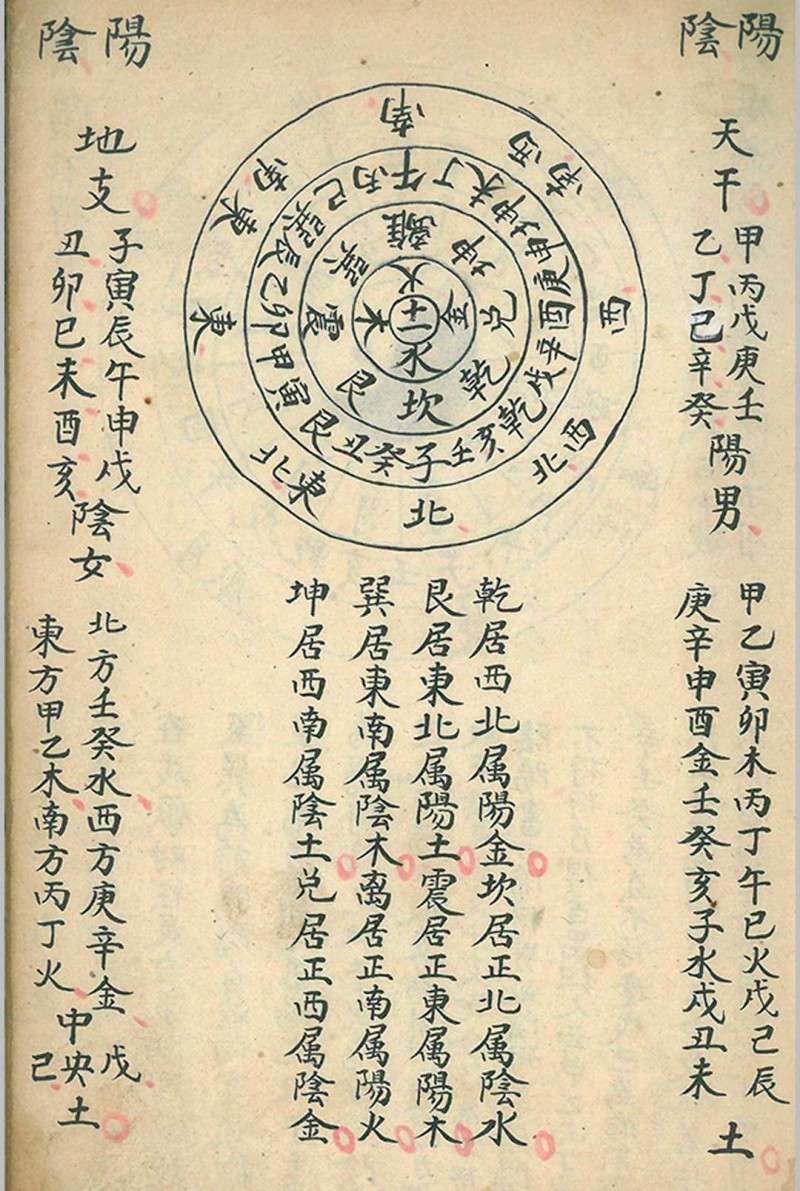 陽
陰
天干
甲丙戊庚壬
乙丁己辛癸
陽男
甲乙寅卯木丙丁午巳火戊己辰
庚辛申酉金壬癸亥子水戌丑未
土
南
西南
西
西北
北
東北
東
東南
午丁未坤申庚酉辛戌乾亥壬子癸丑艮寅甲卯乙艮巽巳丙
離坤兌乾坎艮震巽
火金水木
土
乾居西北属陽金坎居正北属陰水
艮居東北属陽土震居正東属陽木
巽居東南属陰木离居正南属陽火
坤居西南属陰土兑居正西属陰金
陽
陰
地支
子寅辰午申戌
丑卯巳未酉亥
陰女
北方壬癸水西方庚辛金
東方甲乙木南方丙丁火
中央
戊
己
土